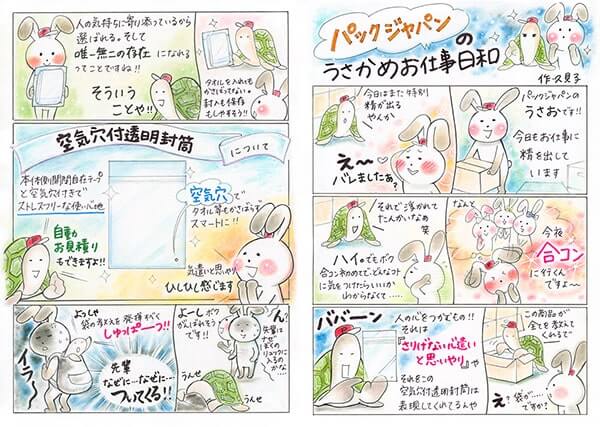 パックジャパンの
うさかめお仕事日和
作・久見子
パックジャパンの
うさおです!!
今日もお仕事に
精を出して
います
今日はまた特別
精が出る
やんか
え〜
バレましたぁ?
なんと
今夜
合コン
に行くん
ですよ〜
それで浮かれて
たんかいなぁ
笑
ハイ♥でもボク
合コン初めてで、どんなコト
に気をつけたらいいか
わからなくて……
この商品が
全てを教えて
くれるで
え?袋が……
ですか?
ババーン
人の心をつかむもの!!
それは
"さりげない心遣い
と思いやり"や
それをこの
空気穴付透明封筒は
表現してくれてるんや
人の気持ちに寄り添っているから
選ばれる。そして
唯一無二の存在になれる
ってことですね!!
そういう
ことや!!
タオルを入れても
かさばらないし
封入も保存
もしやすそう!!
空気穴付透明封筒
について
本体側開閉自在テープ
と空気穴付きで
ストレスフリーな使い心地
空気穴で
タオル等もかさばらず
スマートに!!
自動
お見積り
もできますよ!!
気遣いと思いやり
ひしひし感じます
よーしボク
がんばれそう
です!!
ん?
先輩は
ナゼ
ぼくの
リュックに
入るの
かな…
うんせ
うんせ
よっしゃ
袋の教えを発揮すべく
しゅっぱーつ!!
イラ〜
先輩
なぜに…なぜに…
ついてくる!!